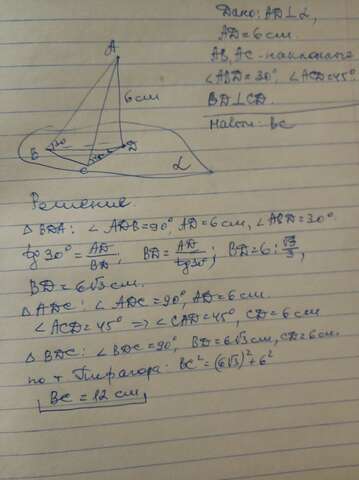 Дано: AD ⊥ α,
AD = 6 см.
AB, AC - наклонные
∠ABD = 30°, ∠ACD = 45°
BD ⊥ CD.
Найти: BC
A
6 см
B 30°
D
C
α
Решение
△ BDA: ∠ADB = 90°, AD = 6 см, ∠ABD = 30°.
tg 30° = AD/BD; BD = AD/tg30°; BD = 6 : √3/3,
BD = 6√3 см.
△ ADC: ∠ADC = 90°, AD = 6 см.
∠ACD = 45° => ∠CAD = 45°, CD = 6 см
△ BDC: ∠BDC = 90°, BD = 6√3 см, CD = 6 см.
по т Пифагора: BC² = (6√3)² + 6²
BC = 12 см,